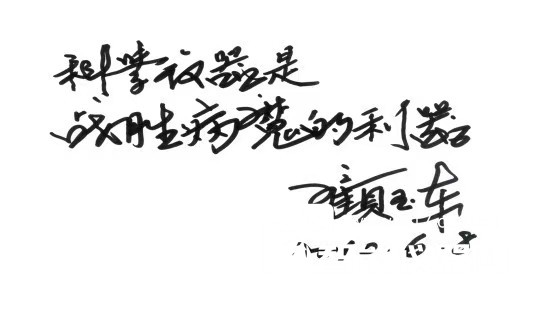 科学仪器是
战胜病魔的利器
顾玉东